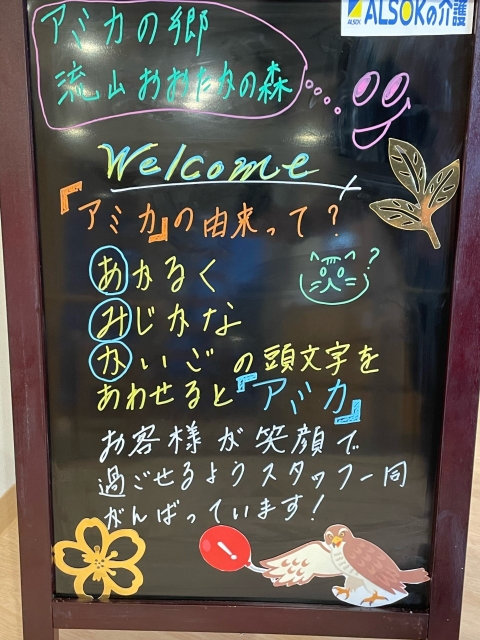 ALSOKの介護
ALSOK
アミカの郷
流山おおたかの森
Welcome
『アミカ』の由来って?
あかるく
みじかな
かいごの頭文字を
あわせると『アミカ』
お客様が笑顔で
過ごせるようスタッフ一同
がんばっています!
?
!